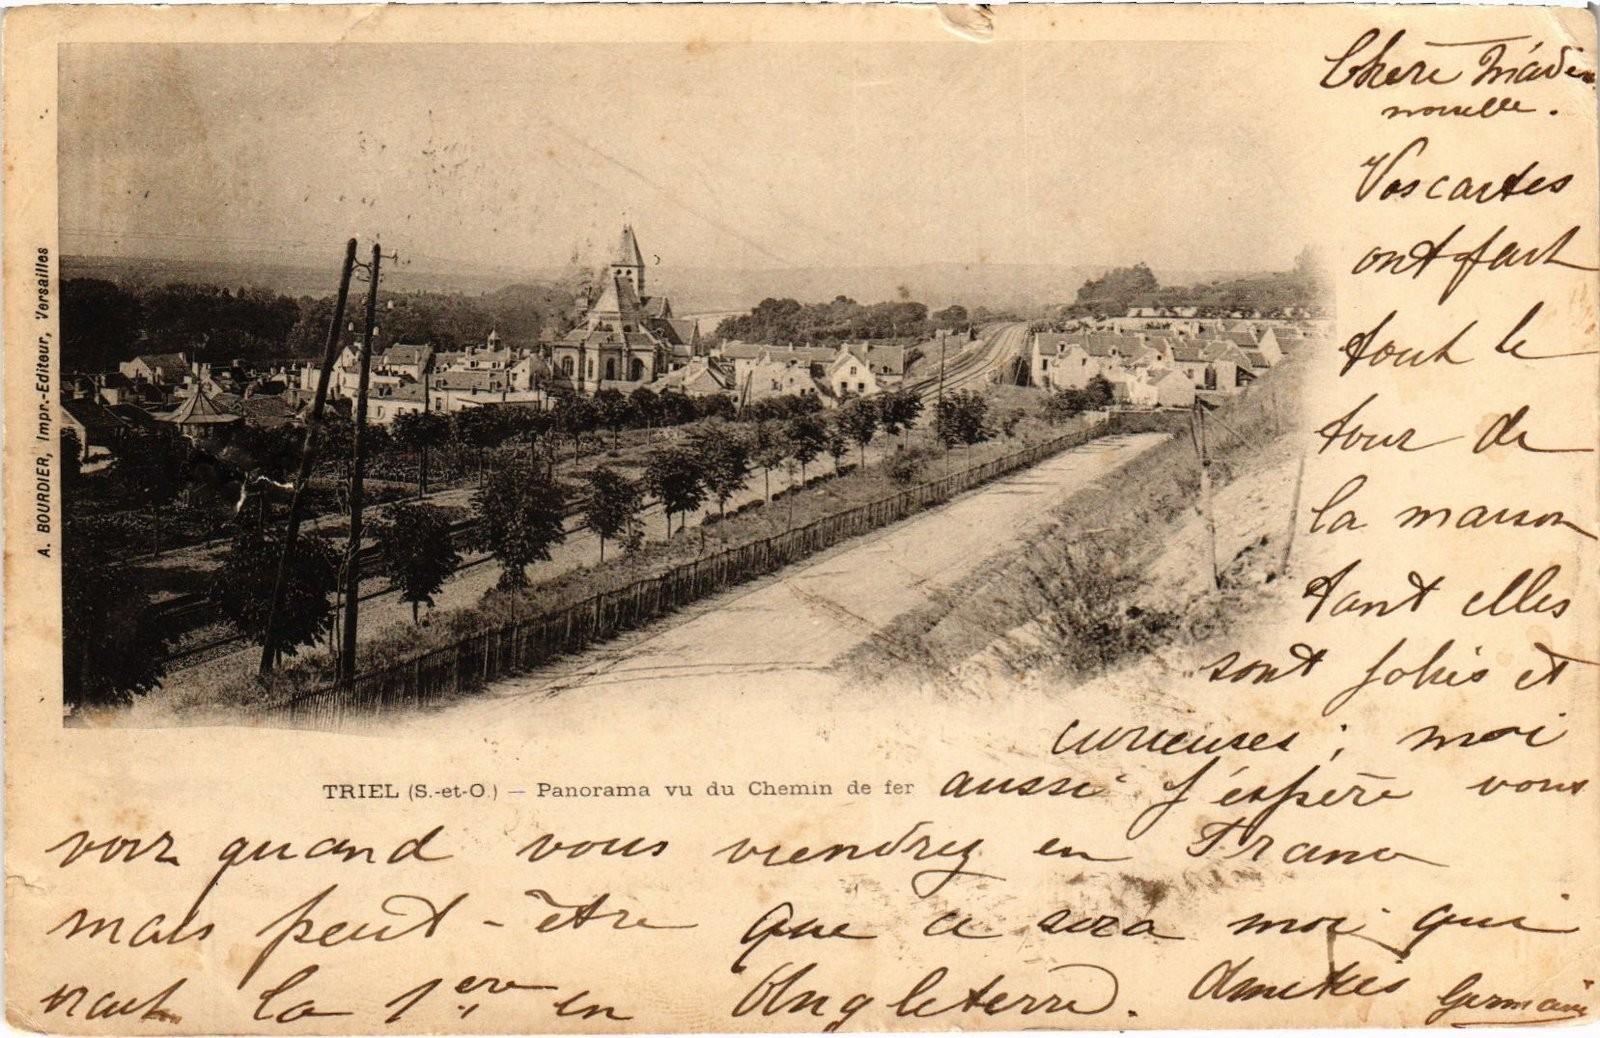 A. BOURDIER, Impr.-Editeur, Versailles
Chère Madem
moiselle.
Vos cartes
ont fait
tout le
tour de
la maison
tant elles
sont jolies et
curieuses ; moi
TRIEL (S.-et-O.) — Panorama vu du Chemin de fer
aussi j'éspère vous
voir quand vous viendrez en France
mais peut-être que ce sera moi qui
irait la 1ère en Angleterre. Amitiés Germaine